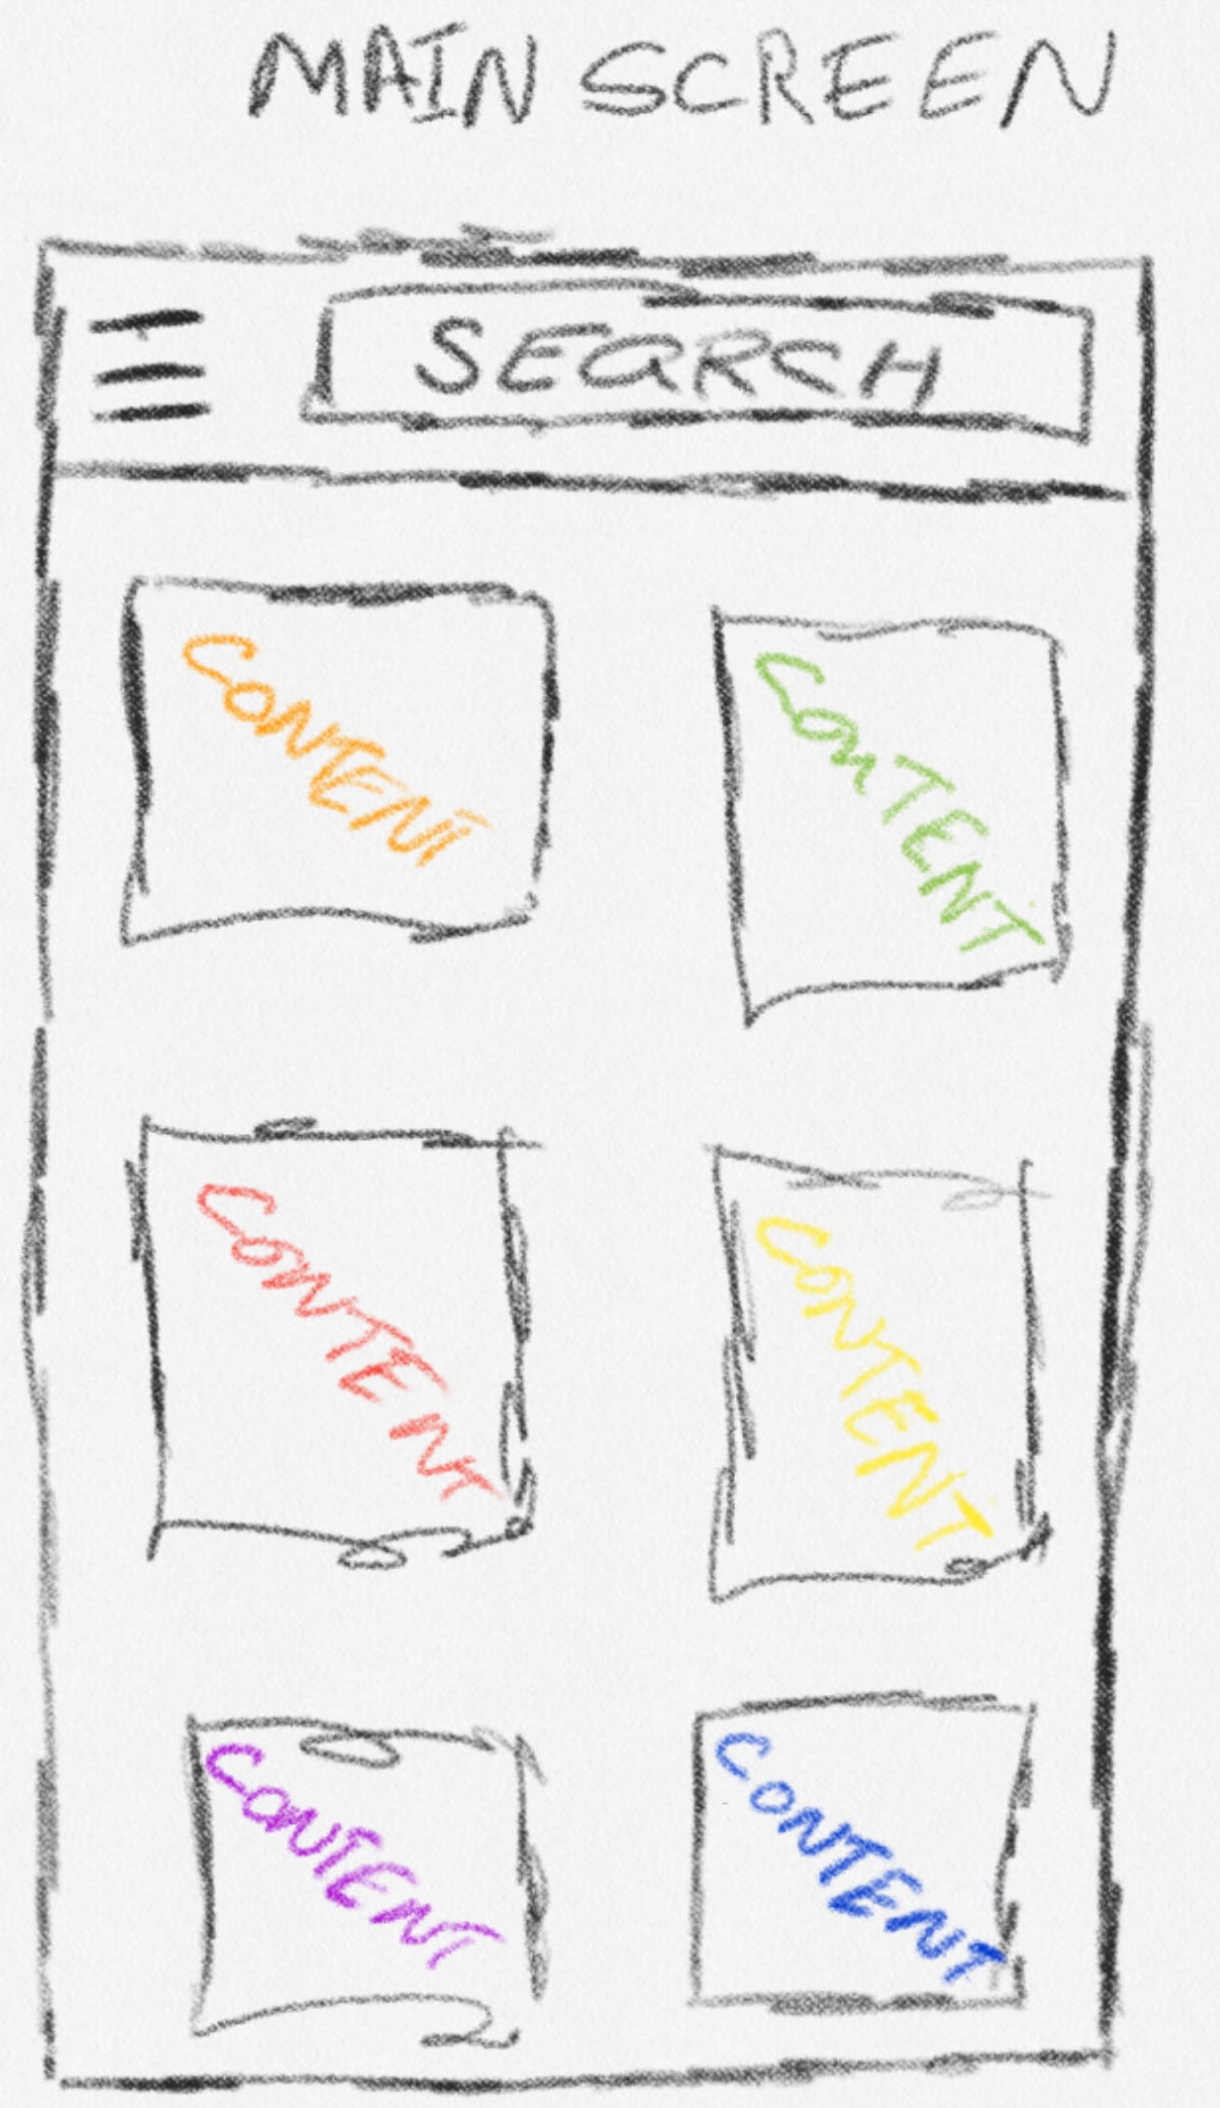 MAIN SCREEN
SEARCH
CONTENT
CONTENT
CONTENT
CONTENT
CONTENT
CONTENT